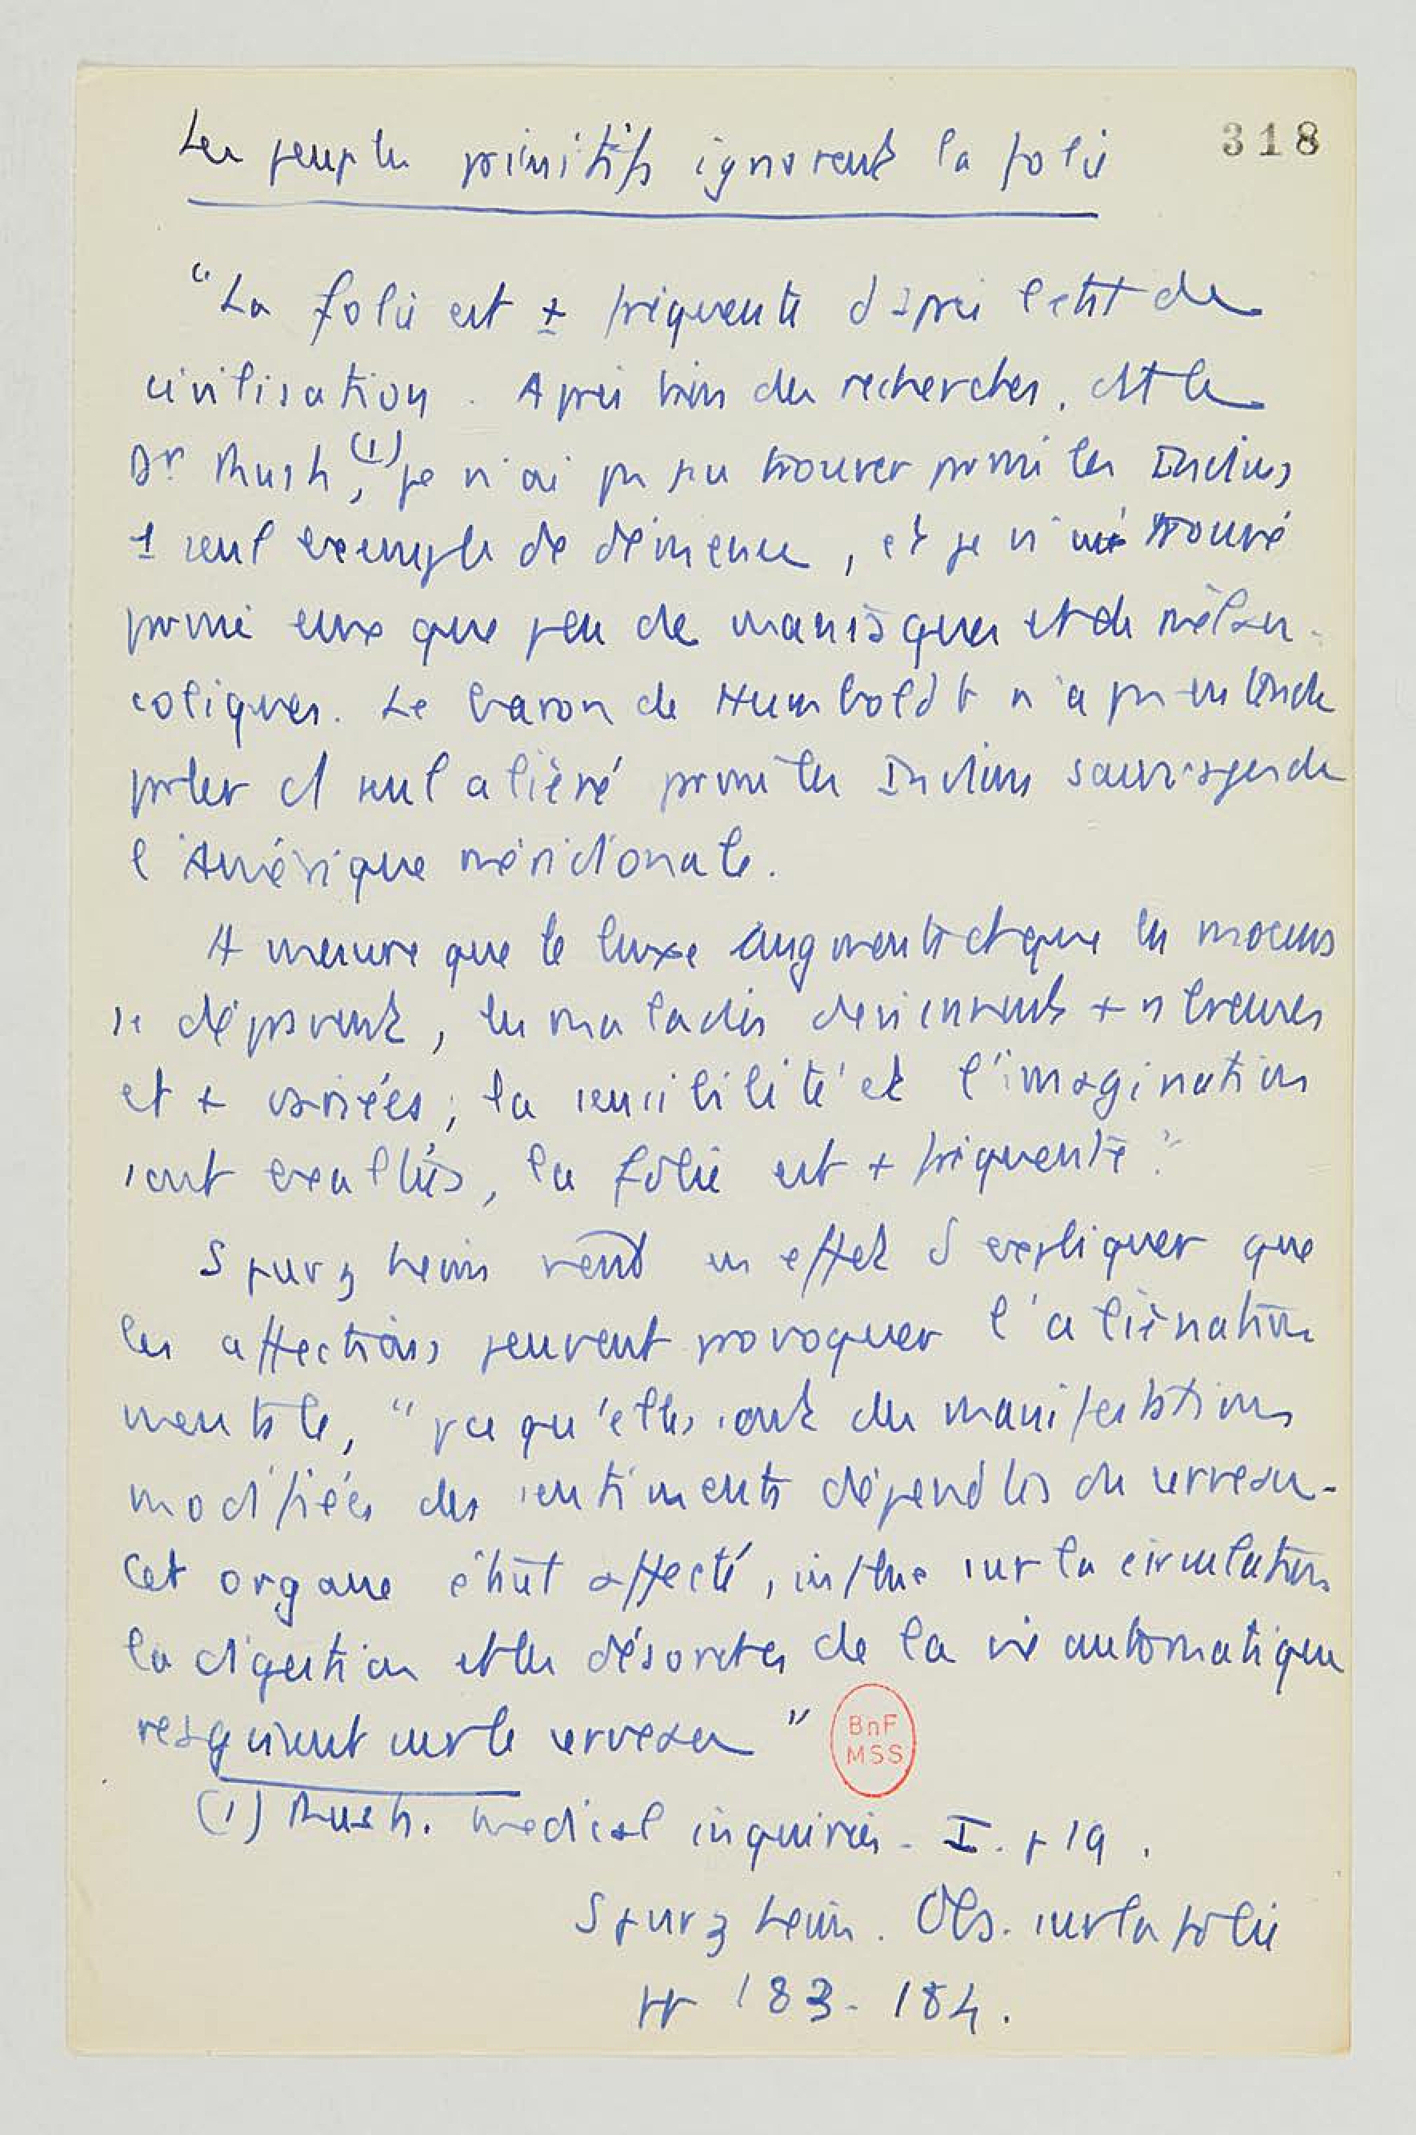 318
Les peuples primitifs ignorent la folie
"La folie est ± fréquente d'après l'état de
civilisation. Après bien des recherches, dit le
Dr Rush,(1) je n'ai pu trouver parmi les Indiens
1 seul exemple de démence, et je n'ai trouvé
parmi eux que peu de maniaques et de mélan-
coliques. Le baron de Humboldt n'a pas entendu
parler d'1 seul aliéné parmi les Indiens sauvages de
l'Amérique méridionale.
A mesure que le luxe augmente et que les moeurs
se dépravent, les maladies deviennent + nbreuses
et + variées ; la sensibilité et l'imagination
sont exaltées, la folie est + fréquente."
Spurzheim vend en effet d'expliquer que
les affections peuvent provoquer l'aliénation
mentale, "pce qu'elles sont des manifestations
modifiées des sentiments dépendts du cerveau-
Cet organe étant affecté, influe sur la circulation
la digestion et les désordres de la vie automatique
réagissent sur le cerveau"
BnF
MSS
(1) Rush. Medical inquiries - I. p 19.
Spurzheim. Obs. sur la folie
pp 183-184.